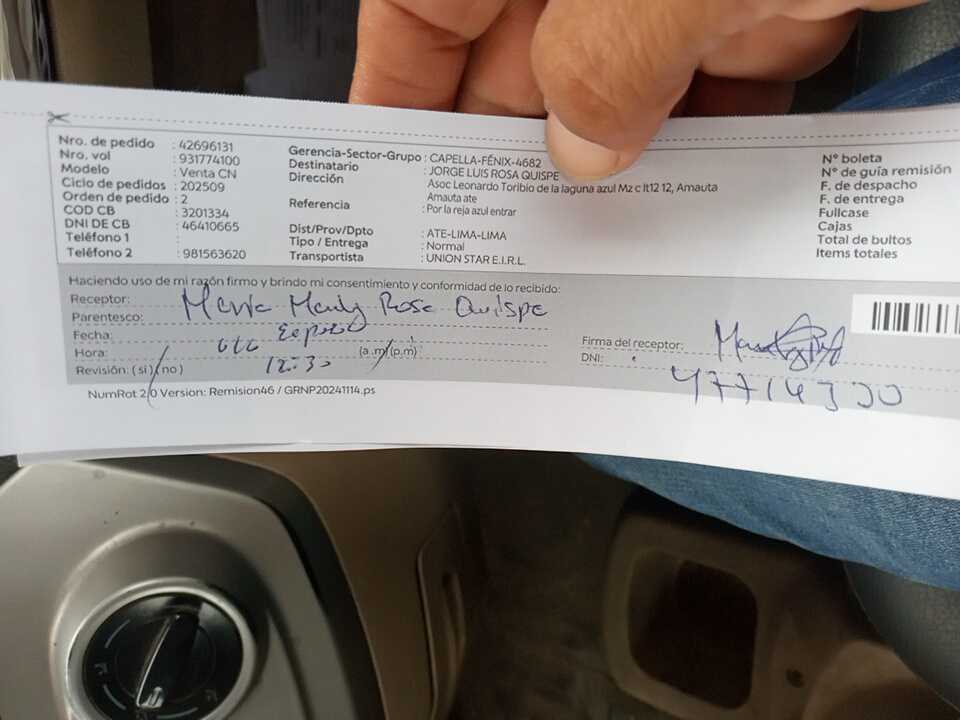 Nro. de pedido : 42696131
Nro. vol : 931774100
Modelo : Venta CN
Ciclo de pedidos : 202509
Orden de pedido : 2
COD CB : 3201334
DNI DE CB : 46410665
Teléfono 1 :
Teléfono 2 : 981563620
Gerencia-Sector-Grupo : CAPELLA-FÉNIX-4682
Destinatario : JORGE LUIS ROSA QUISPE
Dirección : Asoc Leonardo Toribio de la laguna azul Mz c lt12 12, Amauta
Amauta ate
Referencia : Por la reja azul entrar
Dist/Prov/Dpto : ATE-LIMA-LIMA
Tipo / Entrega : Normal
Transportista : UNION STAR E.I.R.L.
N° boleta
N° de guía remisión
F. de despacho
F. de entrega
Fullcase
Cajas
Total de bultos
Items totales
Haciendo uso de mi razón firmo y brindo mi consentimiento y conformidad de lo recibido:
Receptor: Rosa Quispe
Parentesco:
Fecha:
Hora: 12:30 (a.m)/(p.m) :
Revisión: (si) (no)
Firma del receptor:
DNI:
NumRot 2.0 Version: Remision46 / GRNP20241114.ps